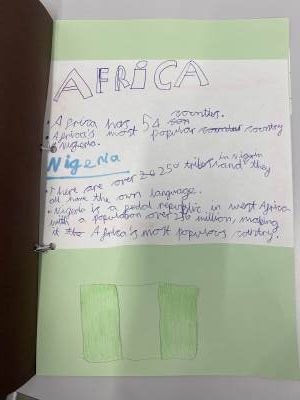 AFRICA
countes.
• Africa has 54
• Africa's most popular country
is Nigeria.
Nigeria
in Nigeria
• There are over 250 tribes and they
all have the own language.
• Nigeria is a fedal republic in west Africa
with a population over 230 million, making
it Africa's most populous country.